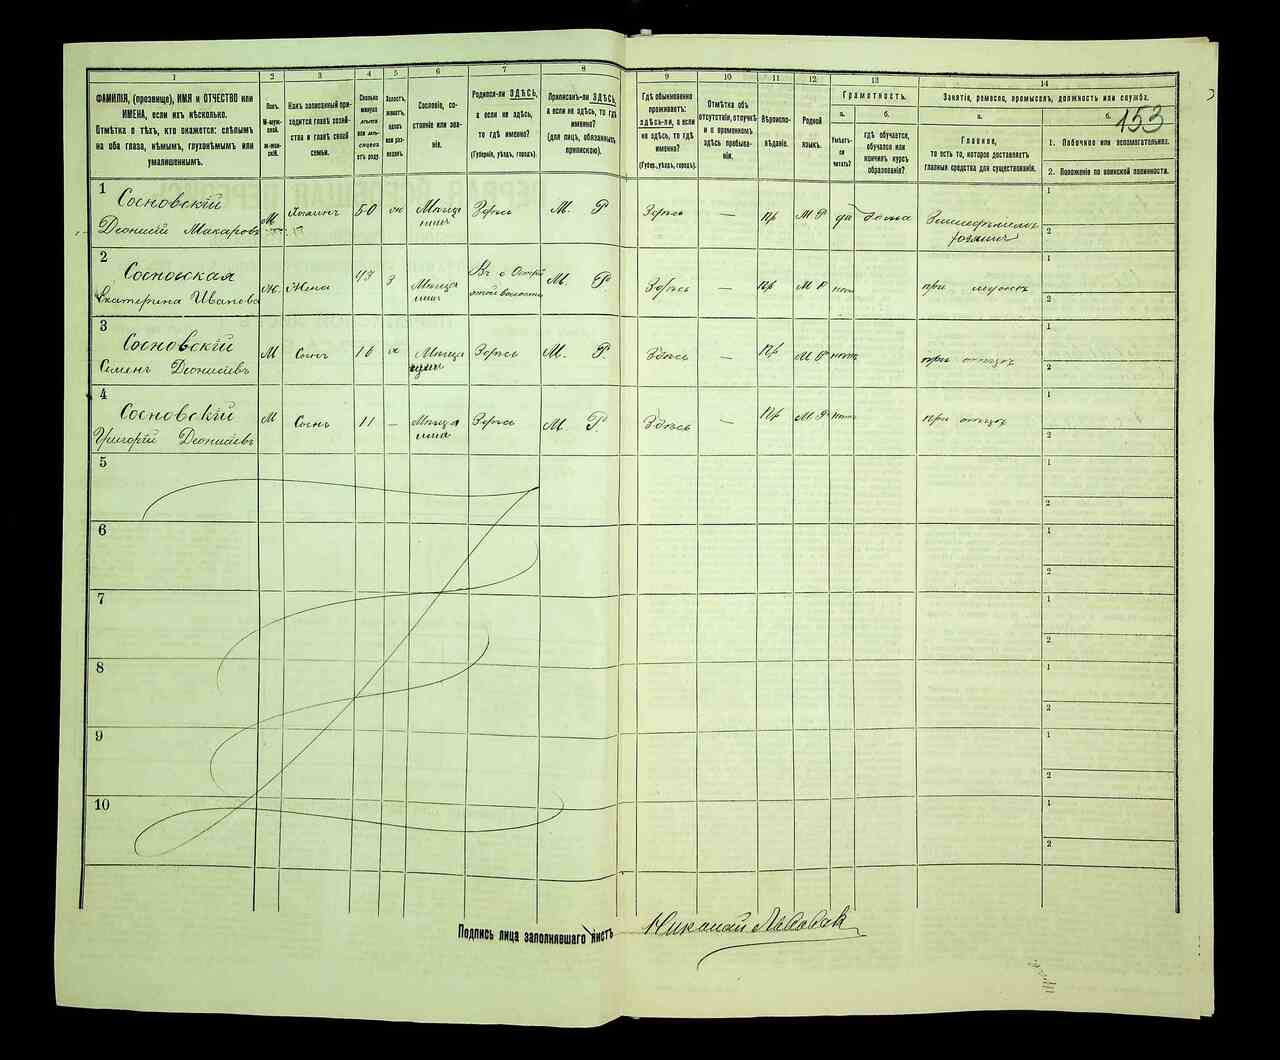 1 2 3 4 5 6 7 8 9 10 11 12 13 14
ФАМИЛІЯ, (прозвище), ИМЯ и ОТЧЕСТВО или
ИМЕНА, если ихъ нѣсколько.
Отмѣтка о тѣхъ, кто окажется: слѣпымъ
на оба глаза, нѣмымъ, глухонѣмымъ или
умалишеннымъ.
Полъ.
М-мужской.
Ж-женскій.
Какъ записанный при-
ходится главѣ хозяй-
ства и главѣ своей
семьи.
Сколько
минуло
лѣтъ
или мѣ-
сяцевъ
отъ роду
Холостъ,
женатъ,
вдовъ
или раз-
веденъ.
Сословіе, со-
стояніе или зва-
ніе.
Родился-ли ЗДѢСЬ,
а если не здѣсь,
то гдѣ именно?
(Губернія, уѣздъ, городъ).
Приписанъ-ли ЗДѢСЬ,
а если не здѣсь, то гдѣ
именно?
(для лицъ, обязанныхъ
припискою).
Гдѣ обыкновенно
проживаетъ:
здѣсь-ли, а если
не здѣсь, то гдѣ
именно?
(Губер., уѣздъ, городъ).
Отмѣтка объ
отсутствіи, отлучкѣ
и о временномъ
здѣсь пребыва-
ніи.
Вѣроиспо-
вѣданіе.
Родной
языкъ.
Грамотность.
а. б.
Умѣетъ-
ли
читать?
гдѣ обучается,
обучался или
кончилъ курсъ
образованія?
Занятіе, ремесло, промыселъ, должность или служба.
а. б.
153
Главное,
то есть то, которое доставляетъ
главныя средства для существованія.
1. Побочное или вспомогательное.
2. Положеніе по воинской повинности.
1 Сосновскій
Деонисій Макаровъ М Хозяинъ 50 Здѣсь М. Р Здѣсь — Пр М Р да дома
хозяинъ
1
2
2 Сосновская
Екатерина Иванова Ж. Жена 43 З М. Р Здѣсь — Пр М Р нѣтъ при мужѣ
1
2
3 Сосновскій
Семенъ Деонисіевъ М Сынъ 16 Здѣсь М. Р. Здѣсь — Пр М Р нѣтъ при отцѣ
1
2
4 Сосновскій
Григорій Деонисіевъ М Сынъ 11 — Здѣсь М. Р. Здѣсь — Пр М Р нѣтъ при отцѣ
1
2
5 1
2
6 1
2
7 1
2
8 1
2
9 1
2
10 1
2
Подпись лица заполнявшаго листъ Николай